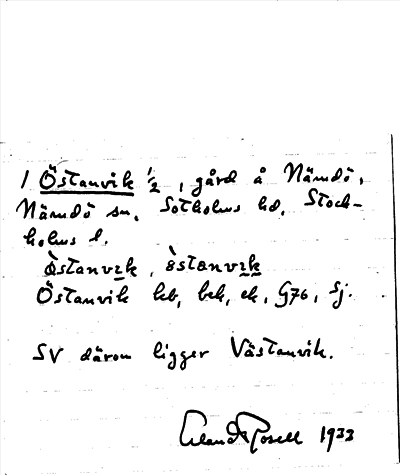 1 Östanvik ½, gård å Nämdö,
Nämdö sn, Sotholms hd, Stock-
holms l.
östanvik, östanvik
Östanvik kb, bek, ek, G76, Sj.
SV därom ligger Västanvik.
Erland Rosell 1933